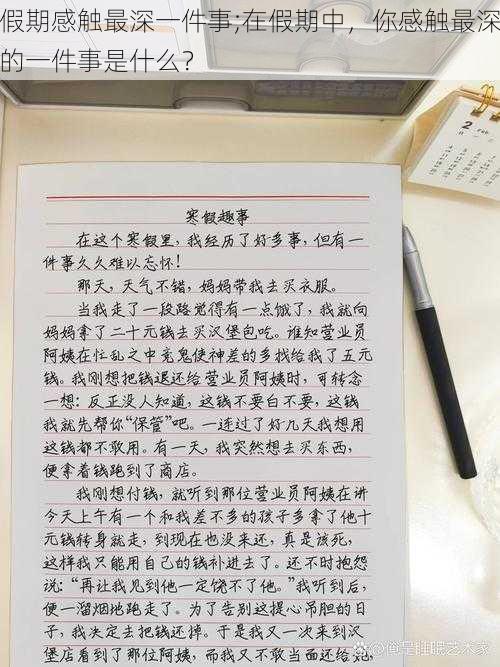 假期感触最深一件事;在假期中，你感触最深
的一件事是什么？
2
寒假趣事
在这个寒假里，我经历了好多事，但有一
件事久久难以忘怀！
那天，天气不错，妈妈带我去买衣服。
当我走了一段路觉得有一点饿了，我就向
妈妈拿了二十元钱去买汉堡包吃。谁知营业员
阿姨在忙乱之中竟鬼使神差的多找给我了五元
钱。我刚想把钱退还给营业员阿姨时，可转念
一想：反正没人知道，这钱不要白不要，这钱
我就先帮你“保管”吧。一连过了好几天我想用
这钱都不敢用。有一天，我突然想去买东西，
便拿着钱跑到了商店。
我刚想付钱，就听到那位营业员阿姨在讲
今天上午有一个和我差不多的孩子多拿了他十
元钱转身就走，到现在也没来还，真是该死，
这样我只能用自己的钱补进去了。还不时抱怨
说：“再让我见到他一定饶不了他。”我听到后，
便一溜烟地跑走了。为了告别这提心吊胆的日
子，我决定去把钱还掉。于是我又一次来到汉
堡店看到了那位阿姨，而我又不敢当面还给她